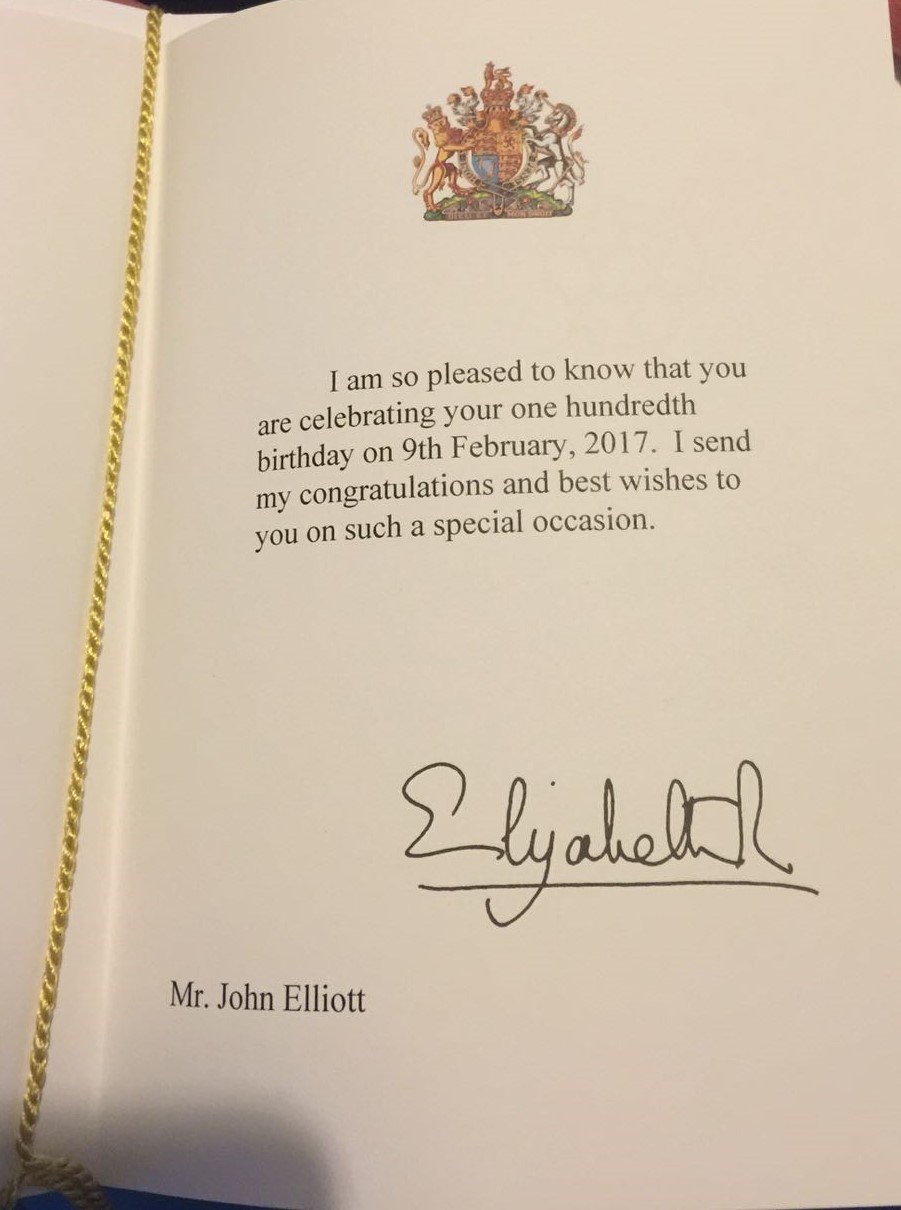 I am so pleased to know that you
are celebrating your one hundredth
birthday on 9th February, 2017. I send
my congratulations and best wishes to
you on such a special occasion.
Elizabeth R
Mr. John Elliott